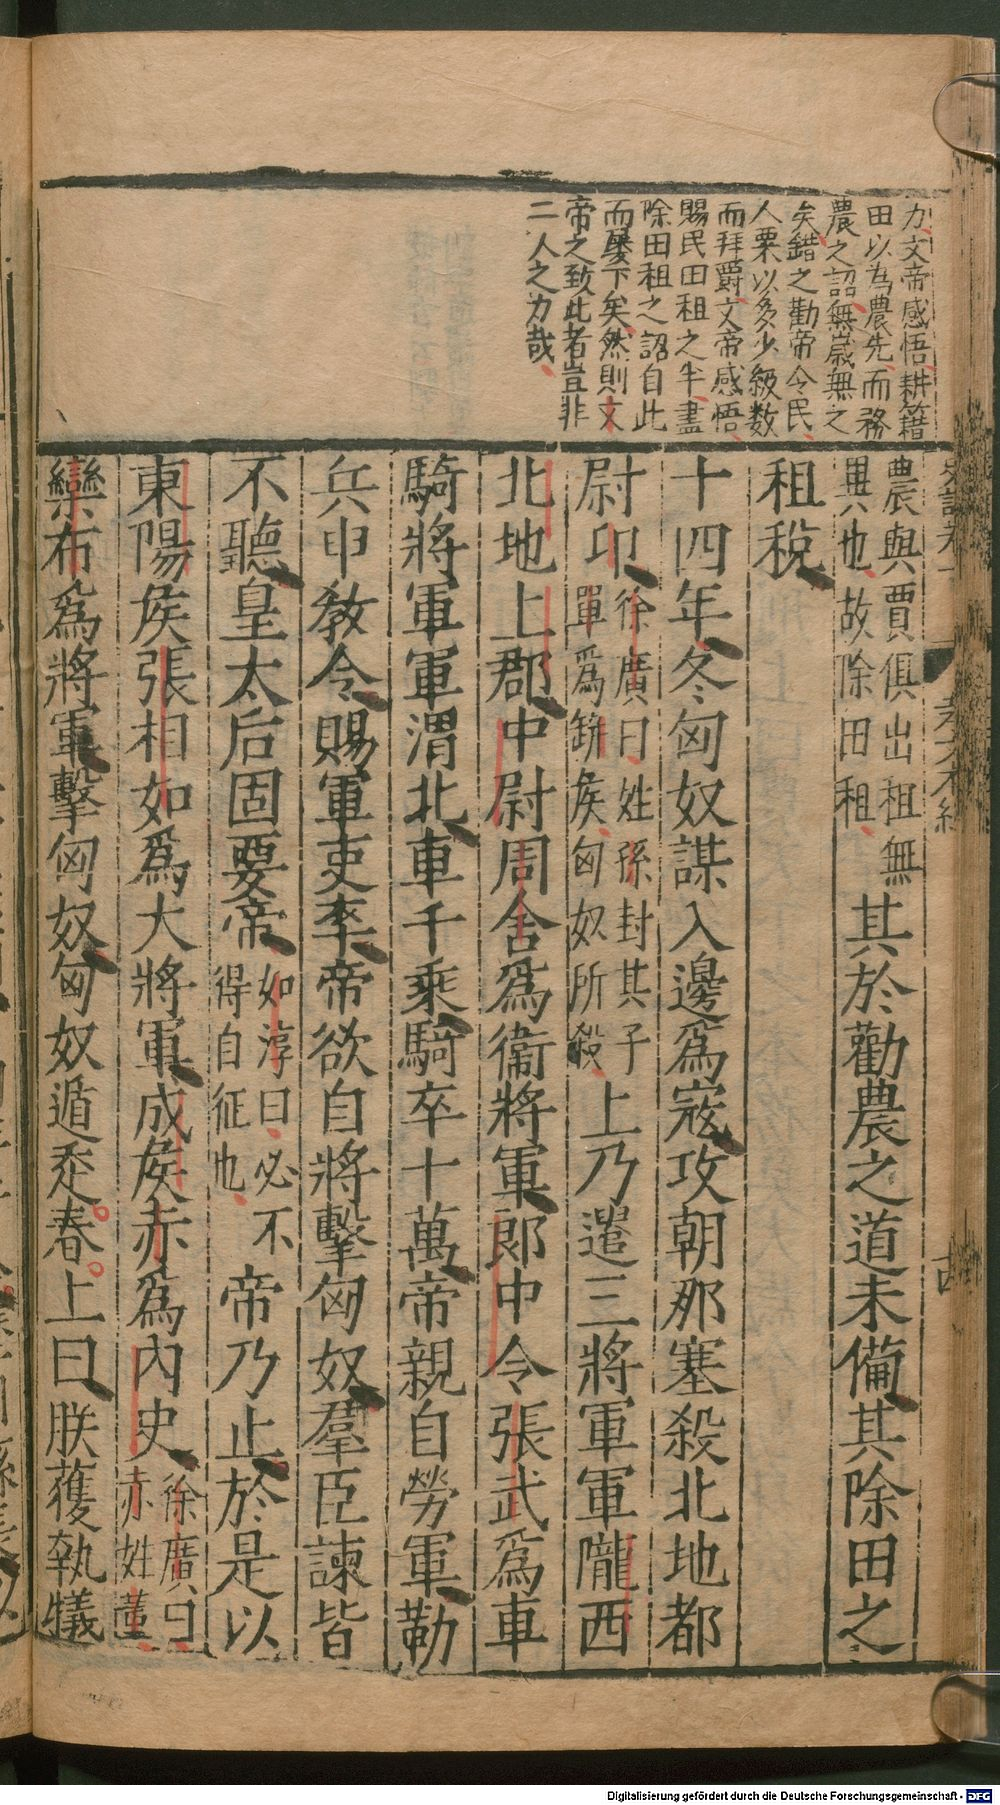 力文帝感悟耕籍
田以為農先而務
農之詔無歲無之
矣錯之勸帝令民
人粟以多少級数
而拜爵文帝感悟
賜民田租之半盡
除田租之詔自此
而屡下矣然則文
帝之致此者豈非
二人之力哉
農與賈俱出租無
異也故除田租
其於勸農之道未備其除田之
租稅
十四年冬匈奴謀入邊爲宼攻朝那塞殺北地都
尉卬
徐廣曰姓孫封其子
單爲缾侯匈奴所殺
上乃遣三將軍軍隴西
北地上郡中尉周舍爲衞將軍郎中令張武爲車
騎將軍軍渭北車千乘騎卒十萬帝親自勞軍勒
兵申敎令賜軍吏率帝欲自將擊匈奴羣臣諫皆
不聽皇太后固要帝
如淳曰必不
得自征也
帝乃止於是以
東陽侯張相如爲大將軍成侯赤爲內史
徐廣曰
赤姓董
欒布爲將軍擊匈奴匈奴遁走春上曰朕獲執犧
Digitalisierung gefördert durch die Deutsche Forschungsgemeinschaft - DFG